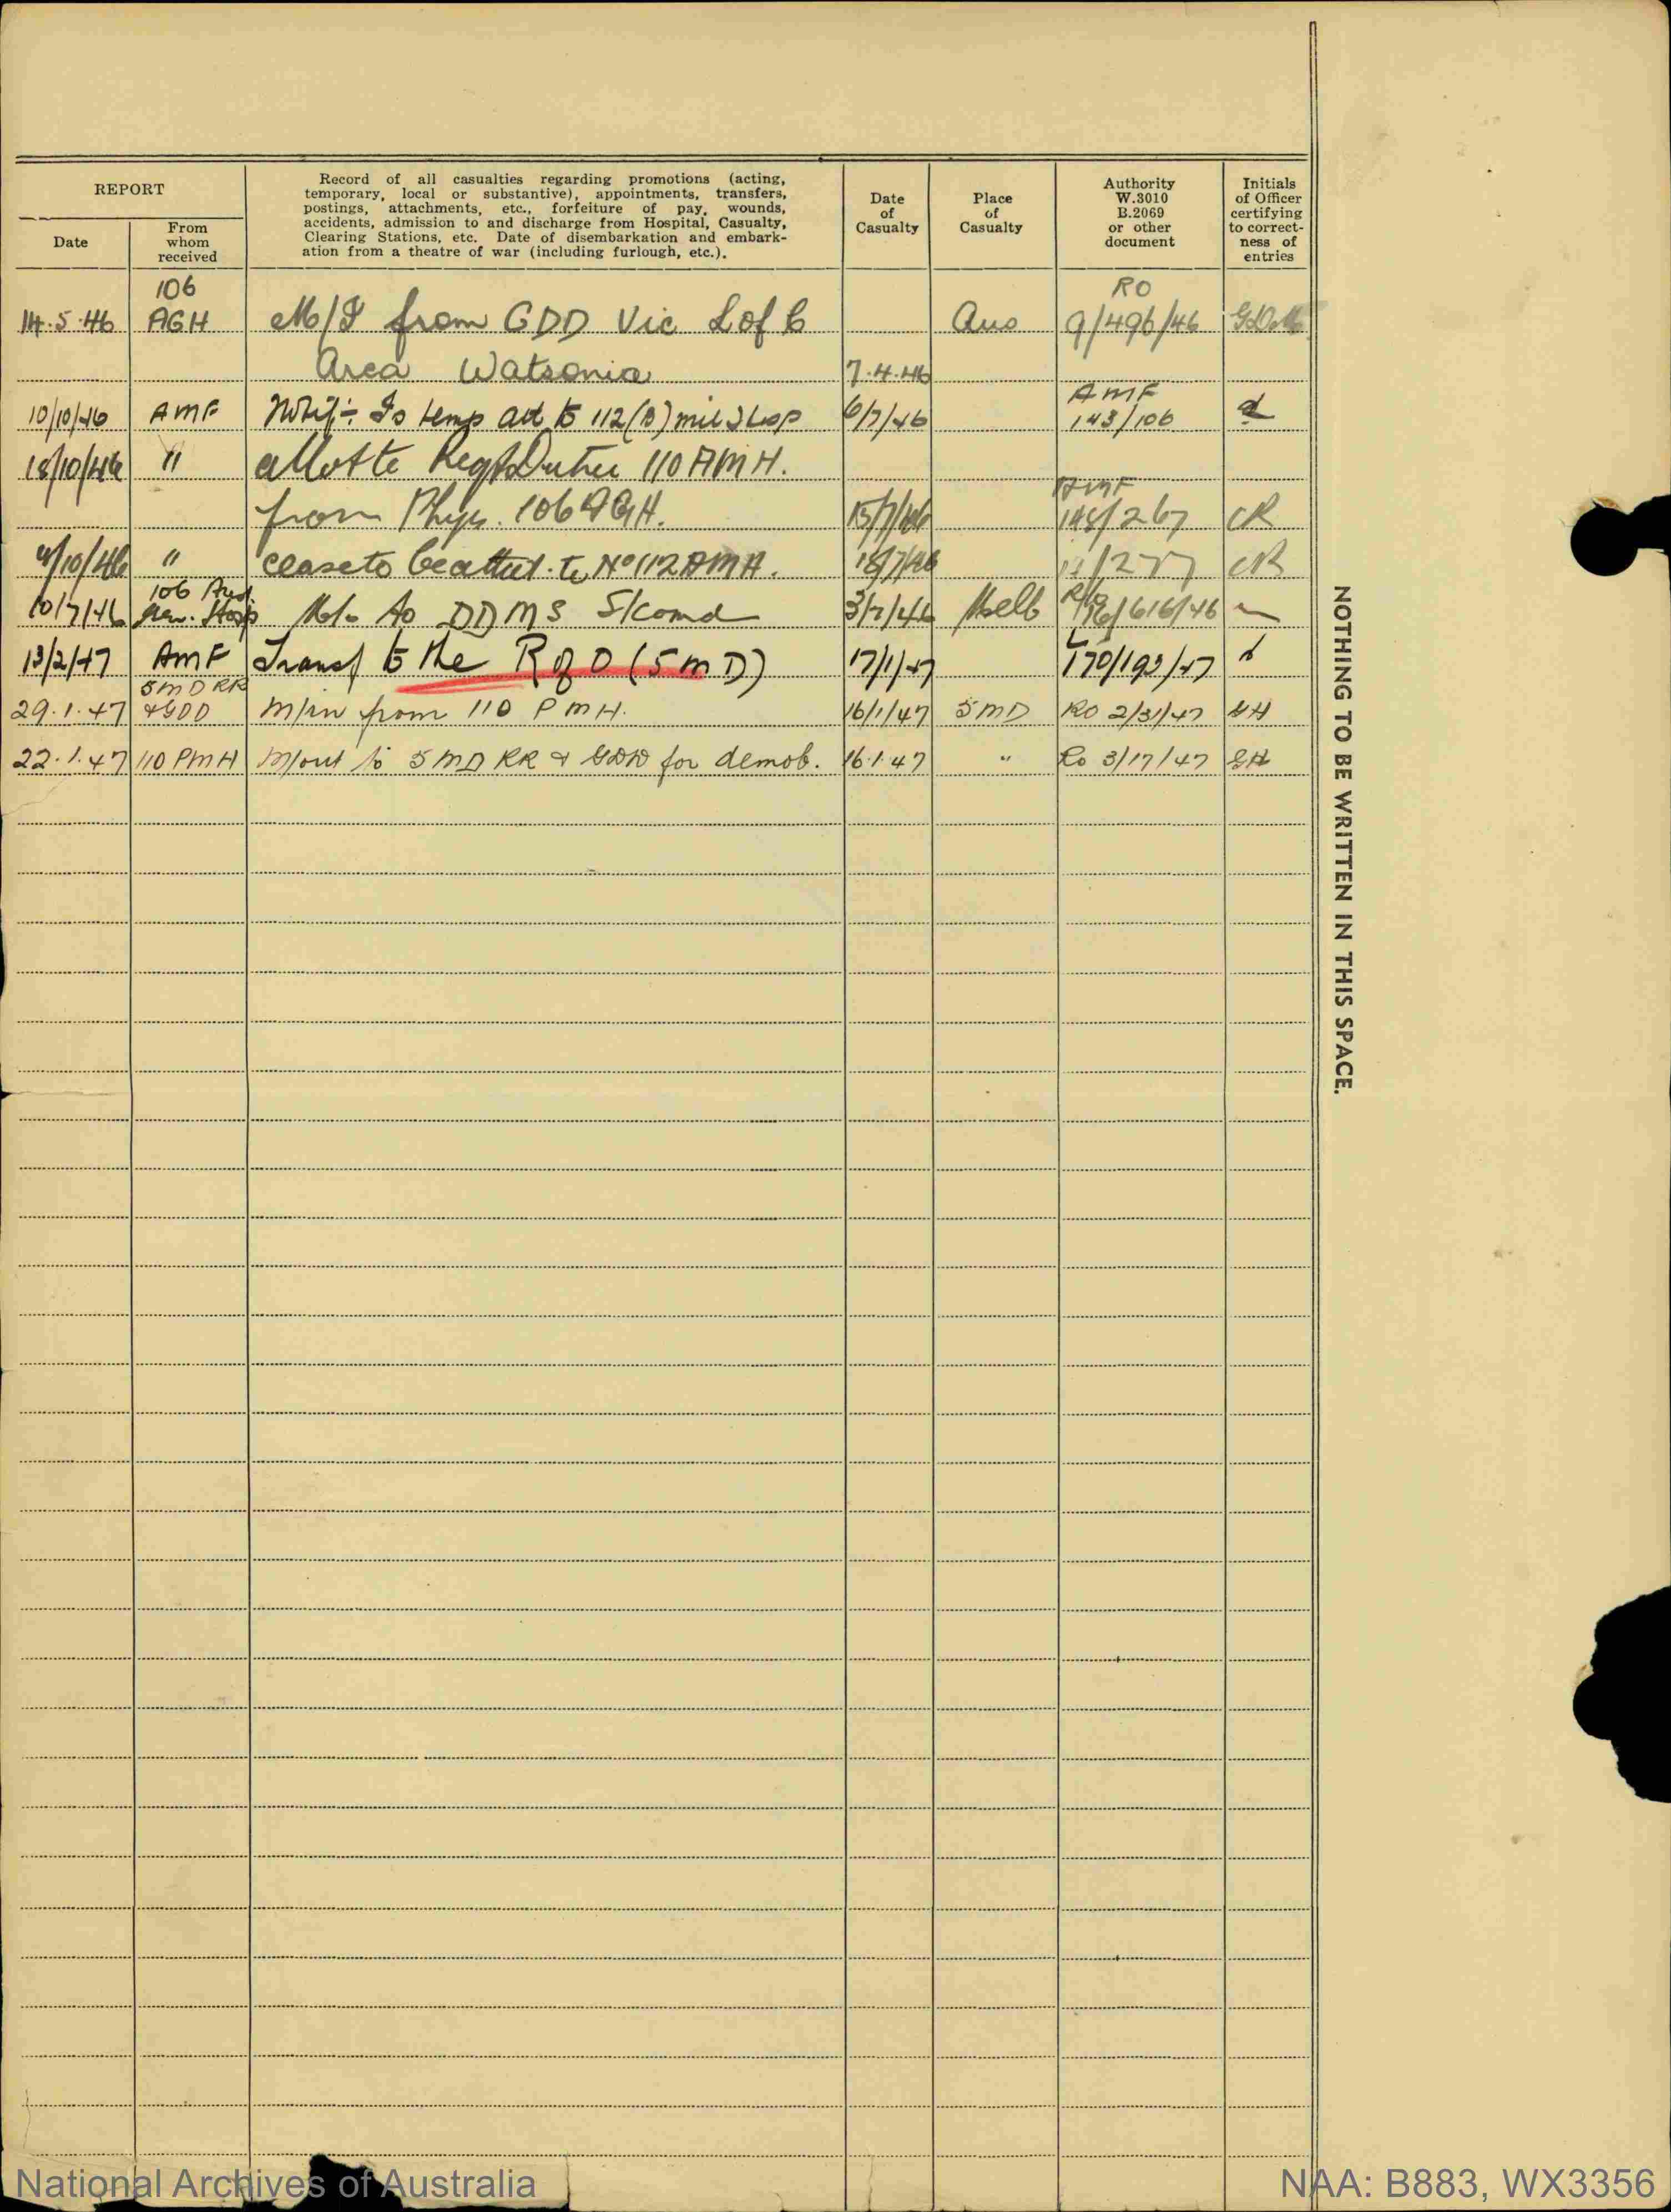 REPORT
Date
From
whom
received
Record of all casualties regarding promotions (acting,
temporary, local or substantive), appointments, transfers,
postings, attachments, etc., forfeiture of pay, wounds,
accidents, admission to and discharge from Hospital, Casualty,
Clearing Stations, etc. Date of disembarkation and embark-
ation from a theatre of war (including furlough, etc.).
Date
of
Casualty
Place
of
Casualty
Authority
W.3010
B.2069
or other
document
Initials
of Officer
certifying
to correct-
ness of
entries
106 RO
14.5.46 AGH M/I from GDD Vic L of C Aus 9/496/46
Area Watsonia 7.4.46
AMF
10/10/46 AMF to temp att to 112(B) mil Hosp 6/7/46 143/106
18/10/46 " 110 AMH.
AMF
from Phys. 106 AGH. 15/7/46 148/267 CR
/10/46 " cease to be attd. to No 112 AMH. /277 CR
106 Aust.
10/7/46 Gen. Hosp M/o to DDMS S/Comd 3/7/46 Melb /616/46
13/2/47 AMF Transf to the R of O (5 MD) 17/1/47 170/192/47
5MD RR
29.1.47 & GDD M/in from 110 PMH. 16/1/47 5MD RO 2/31/47
22.1.47 110 PMH M/out to 5 MD RR & GDD for demob. 16.1.47 " Ro 3/17/47
NOTHING TO BE WRITTEN IN THIS SPACE.
National Archives of Australia
NAA: B883, WX3356